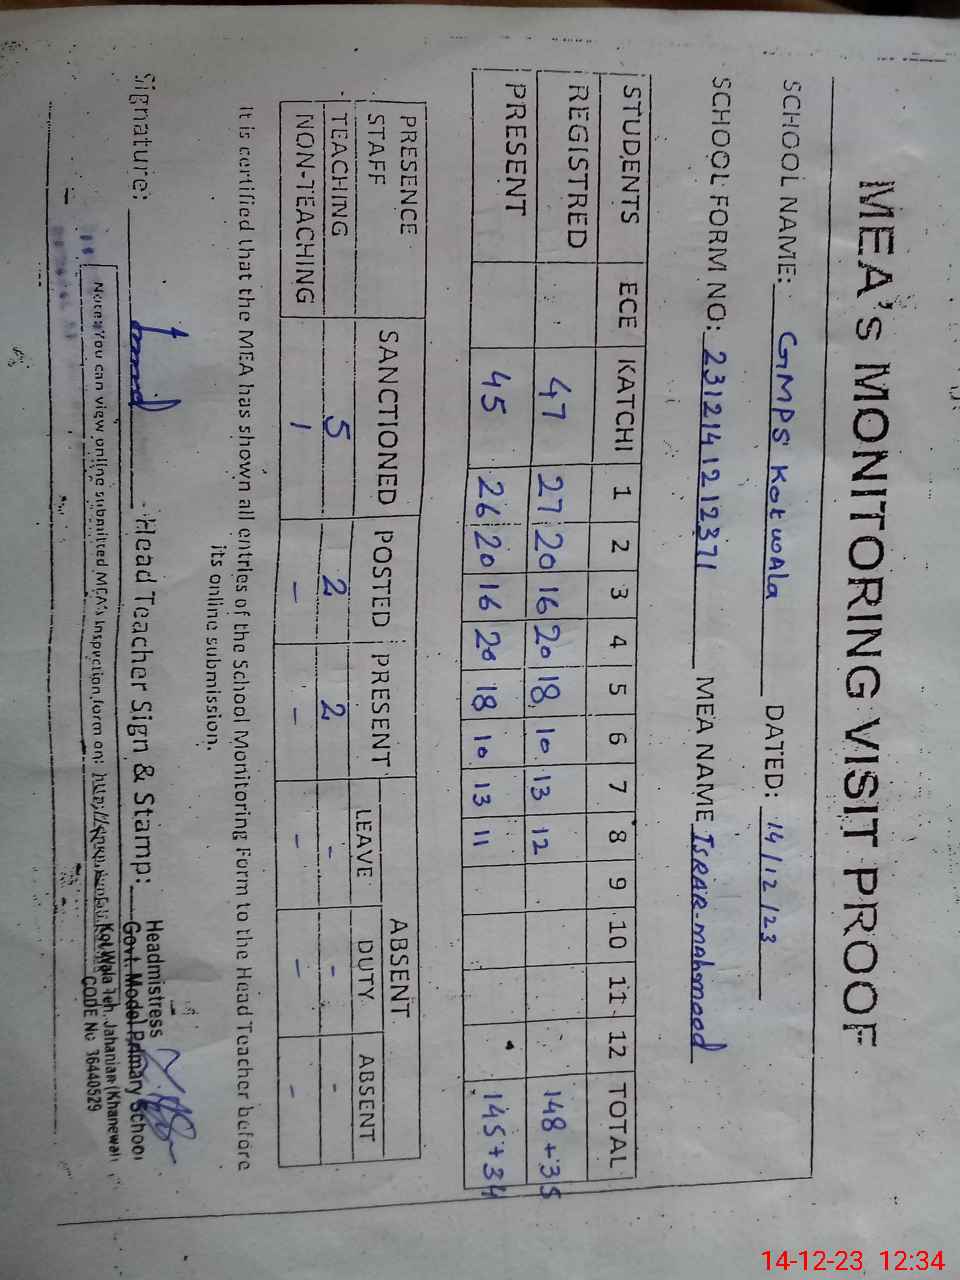 MEA's MONITORING VISIT PROOF
SCHOOL NAME: GMPS Kotwala DATED: 14/12/23
SCHOOL FORM NO: 2312141212371 MEA NAME Israr-mahmood
STUDENTS ECE KATCHI 1 2 3 4 5 6 7 8 9 10 11 12 TOTAL
REGISTRED 47 27 20 16 20 18 10 13 12 148+35
PRESENT 45 26 20 16 20 18 10 13 11 145+34
PRESENCE STAFF SANCTIONED POSTED PRESENT ABSENT
LEAVE DUTY ABSENT
TEACHING 5 2 2 - - -
NON-TEACHING 1 - - - - -
It is certified that the MEA has shown all entries of the School Monitoring Form to the Head Teacher before
its online submission.
Signature: Head Teacher Sign & Stamp:
Headmistress
Govt. Model Primary School
Kot Wala Teh. Jahanian (Khanewal)
CODE No 36440529
Note: You can view online submitted MEA's Inspection form on:
14-12-23 12:34